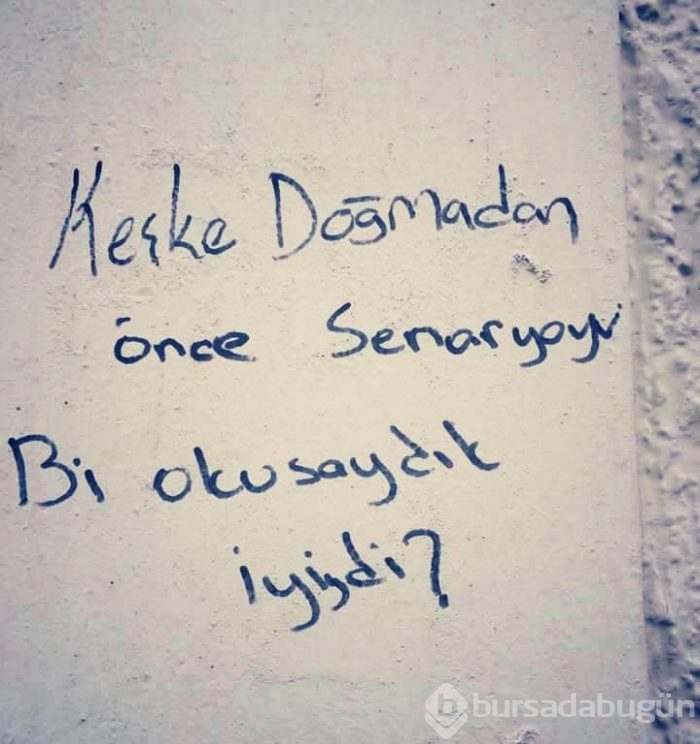 Keşke Doğmadan
önce Senaryoyu
Bi okusaydık
iyiydi?
bursadabugün